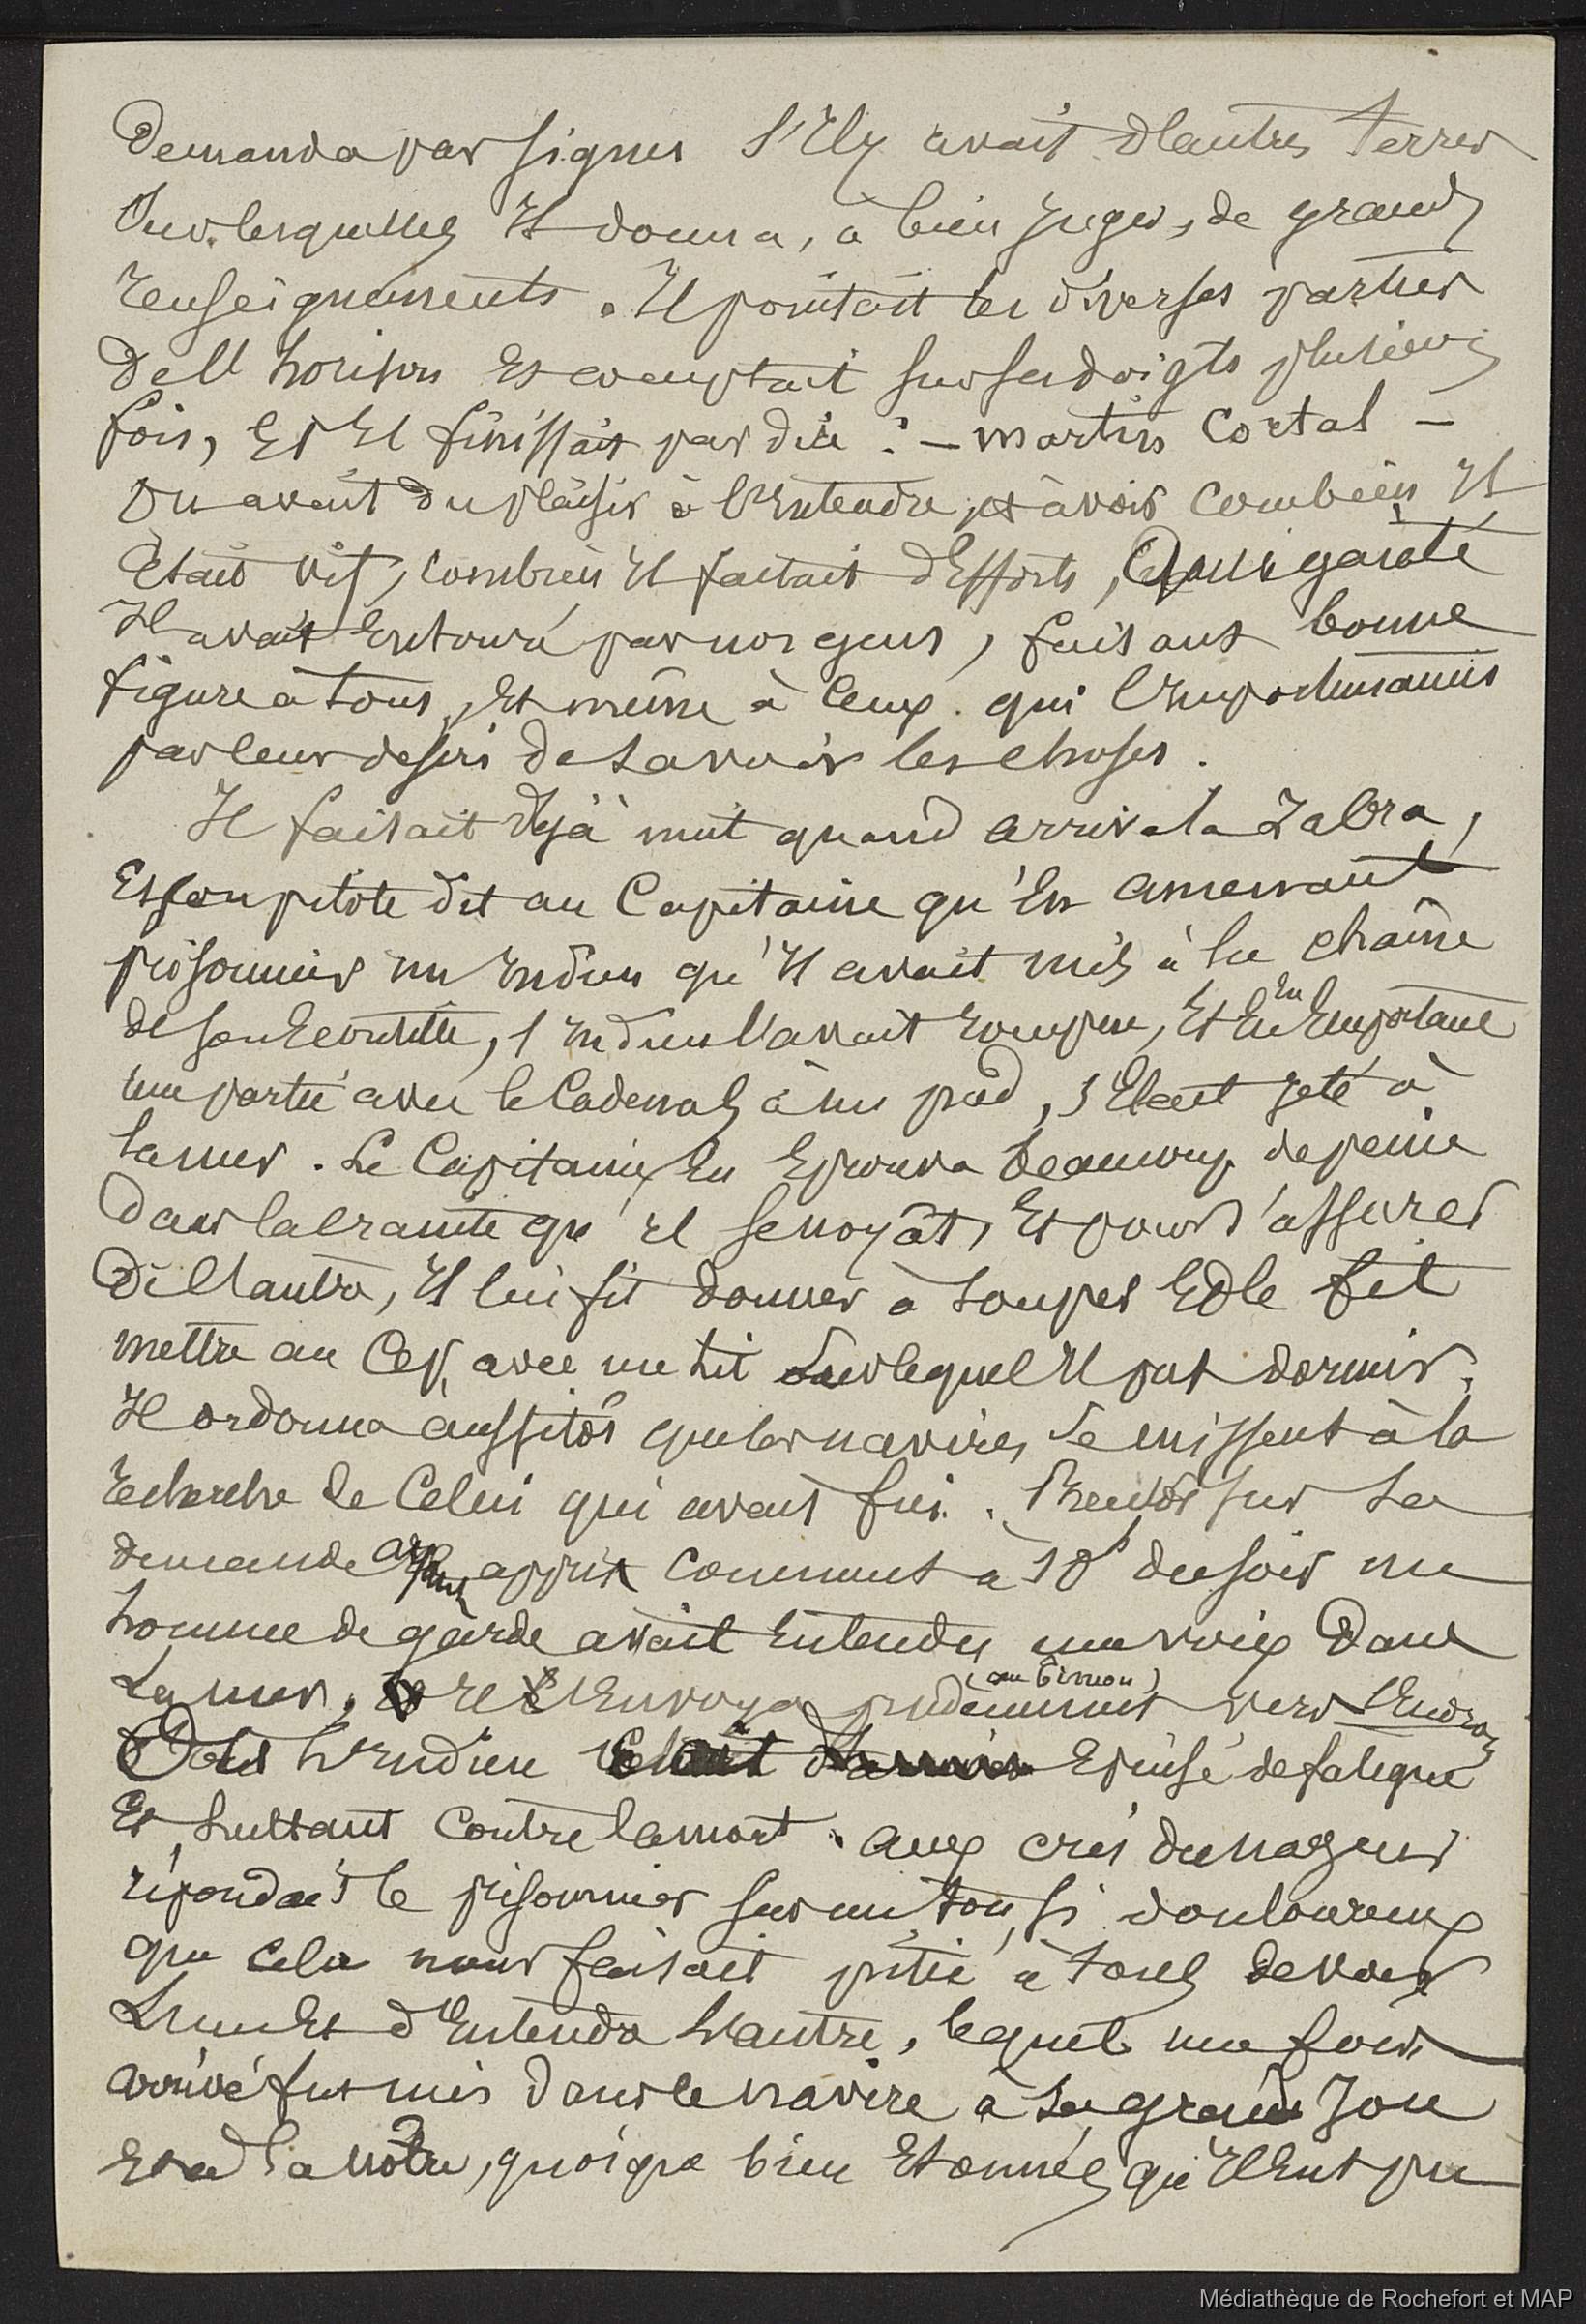 Demanda par signes s'Il y avait d'autres terres
Sur lesquelles Il donna, à bien juger, de grands
renseignements. Il pointait les diverses parties
de ll horison Et comptait sur ses doigts plusieurs
fois, Et Il finissait par dire : — martin Cortal —
On avait du plaisir à l'Entendre, Et à voir combien Il
Etait vif, combien Il faisait d'Efforts, Quelle gaieté
Il avait Entouré par nos gens, faisant bonne
figure à tous, Et même à ceux qui l'Importunaient
par leur desir de savoir les choses.
Il faisait déjà nuit quand arriva la Zabra,
Et son pilote dit au Capitaine qu'En amenant
prisonnier un Indien qu'Il avait mis à la chaîne
de son Ecoutille, l'Indien l'avait rompue, Et En Emportant
une partie avec le Cadenas à un pied, s'Etait jeté à
la mer. Le Capitaine En Eprouva beaucoup de peine
Dans la crainte qu'il se noyât, Et pour s'assurer
de l'autre, Il lui fit donner à souper Et le fit
mettre au Cep, avec un lit sur lequel Il put dormir.
Il ordonna aussitôt que les navires se missent à la
recherche de Celui qui avait fui. Bientôt sur sa
demande appris comment à 10h du soir un
homme de garde avait Entendu une voix Dans
La mer, l'Envoya (au timon) vers l'Endroit
Où l'Indien Epuisé de fatigue
Et luttant contre la mort. Aux cris du nageur
répondait le prisonnier sur un ton si douloureux
que cela nous faisait pitié à tous de voir
L'un Et d'Entendre l'autre, lequel une fois
arrivé fut mis dans le navire à sa grande Joie
Et à la nôtre, quoique bien Etonnés qu'Il Eut pu
Médiathèque de Rochefort et MAP